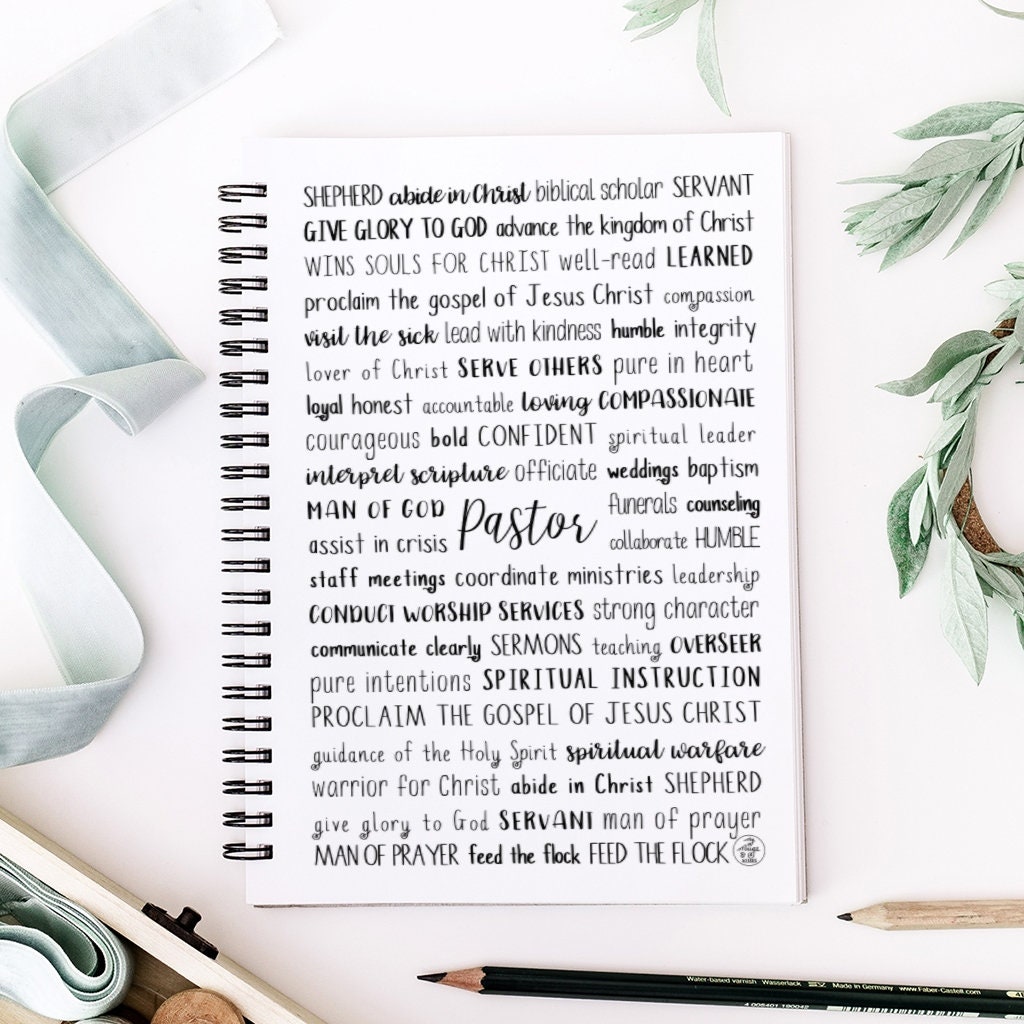 SHEPHERD abide in Christ biblical scholar SERVANT
GIVE GLORY TO GOD advance the kingdom of Christ
WINS SOULS FOR CHRIST well-read LEARNED
proclaim the gospel of Jesus Christ compassion
visit the sick lead with kindness humble integrity
lover of Christ SERVE OTHERS pure in heart
loyal honest accountable loving COMPASSIONATE
courageous bold CONFIDENT spiritual leader
interpret scripture officiate weddings baptism
MAN OF GOD Pastor funerals counseling
assist in crisis collaborate HUMBLE
staff meetings coordinate ministries leadership
CONDUCT WORSHIP SERVICES strong character
communicate clearly SERMONS teaching OVERSEER
pure intentions SPIRITUAL INSTRUCTION
PROCLAIM THE GOSPEL OF JESUS CHRIST
guidance of the Holy Spirit spiritual warfare
warrior for Christ abide in Christ SHEPHERD
give glory to God SERVANT man of prayer
MAN OF PRAYER feed the flock FEED THE FLOCK
Water-based varnish Wasserlack Made in Germany www.Faber-Castell.com